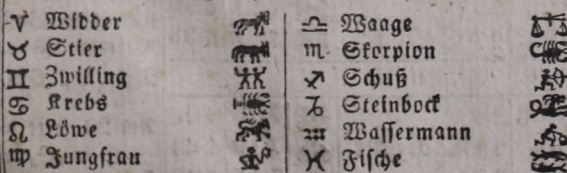 ♈ Widder
♉ Stier
♊ Zwilling
♋ Krebs
♌ Löwe
♍ Jungfrau
♎ Waage
♏ Skorpion
♐ Schuß
♑ Steinbock
♒ Wassermann
♓ Fische